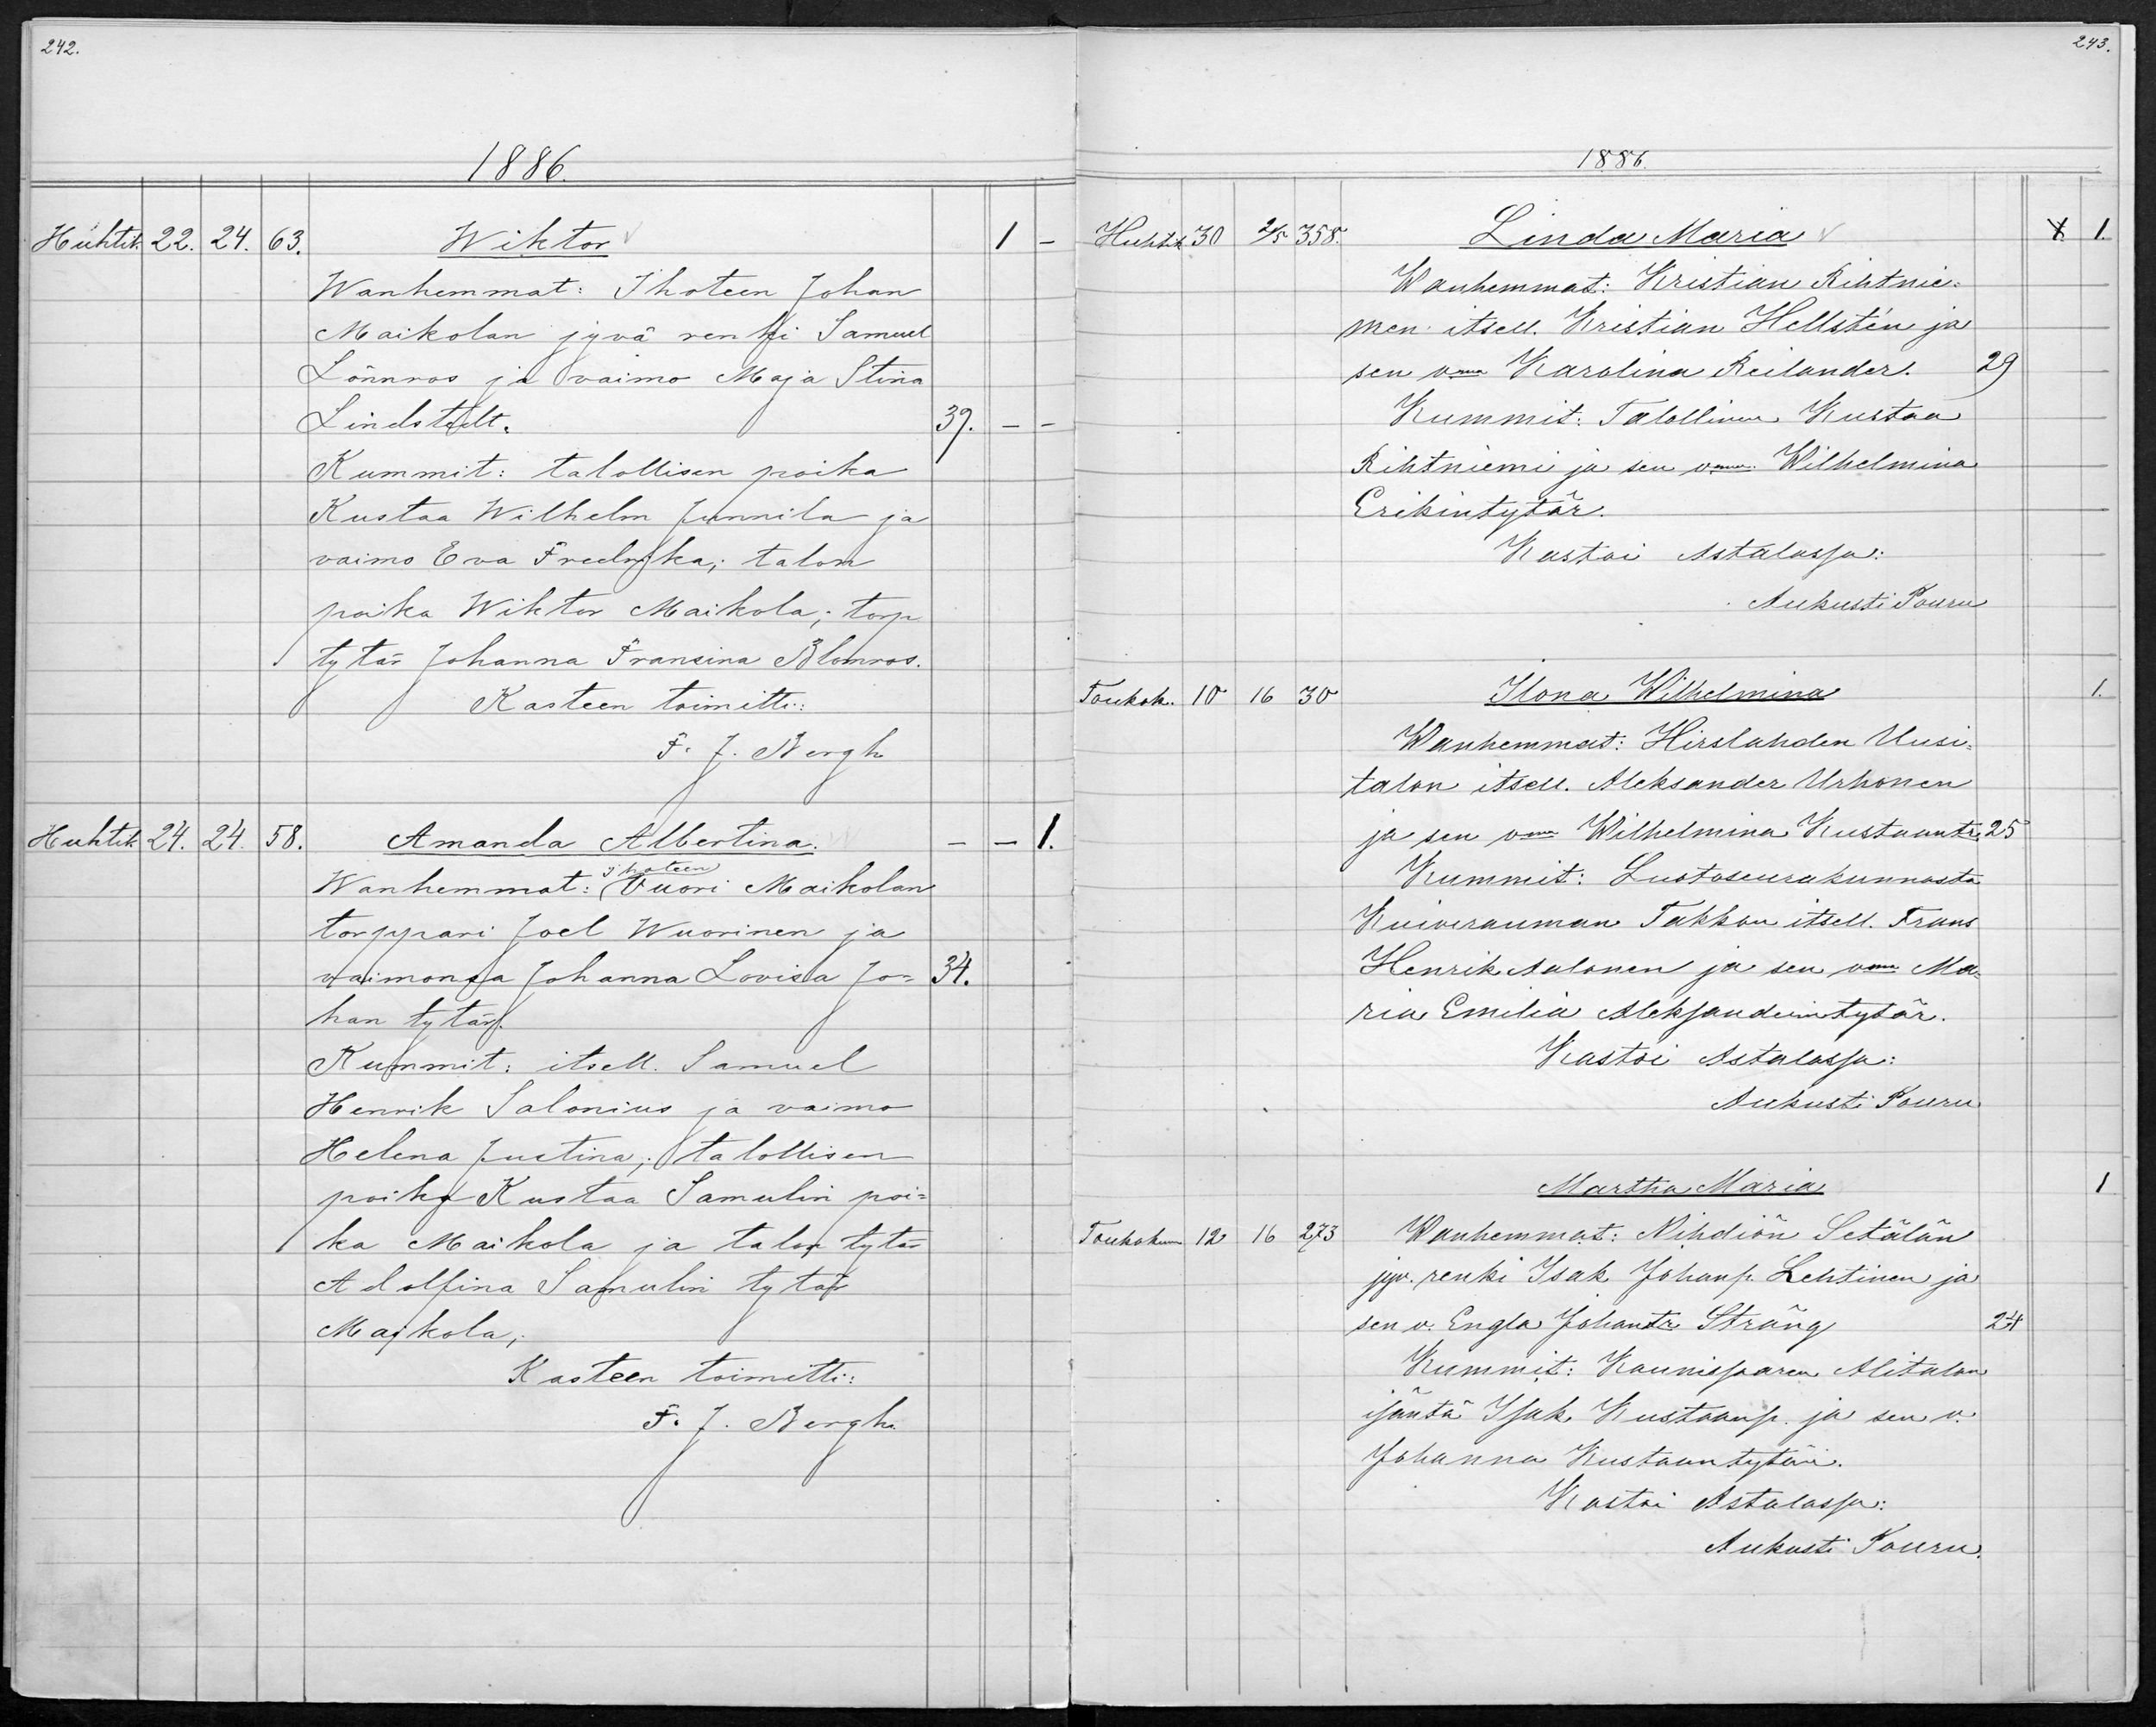 242.
1886.
Huhtik. 22. 24. 63. Wiktor 1 -
Wanhemmat: Ihoteen Johan
Maikolan jyvä renki Samuel
Lönnros ja vaimo Maja Stina
Lindstedt. 39. - -
Kummit: talollisen poika
Kustaa Wilhelm Junnila ja
vaimo Eva Fredrika; talon
poika Wiktor Maikola; torp
tytär Johanna Fransina Blomros.
Kasteen toimitti:
F. J. Bergh
Huhtik. 24. 24. 58. Amanda Albertina. - - 1.
Ihoteen
Wanhemmat: Vuori Maikolan
torppari Joel Wuorinen ja
vaimonsa Johanna Lovisa Jo= 34.
han tytär.
Kummit: itsell. Samuel
Henrik Salonius ja vaimo
Helena Justina; talollisen
poika Kustaa Samulin poi=
ka Maikola ja talon tytär
Adolfina Samulin tytär
Maikola;
Kasteen toimitti:
F. J. Bergh.
243.
1886.
Huhtk 30 2/5 358. Linda Maria 1.
Wanhemmat: Kristian Rihtnie=
men itsell. Kristian Hellstén ja
sen vmo Karolina Reilander. 29
Kummit: Talollinen Kustaa
Rihtniemi ja sen vmo Wilhelmina
Erikintytär.
Kastoi Astalassa:
Aukusti Pouru
Toukok. 10 16 30 Ilona Wilhelmina 1.
Wanhemmat: Hirslahden Uusi=
talon itsell. Aleksander Urhonen
ja sen vmo Wilhelmina Kustaantr 25
Kummit: Luotoseurakunnasta
Kuiverauman Takkou itsell. Frans
Henrik Aalonen ja sen vmo Ma=
ria Emilia Aleksanderintytär.
Kastoi Astalassa:
Aukusti Pouru
Martha Maria 1
Toukokuun 12 16 273 Wanhemmat: Nihdiön Setälän
jyv. renki Isak Johanp. Lehtinen ja
sen v. Engla Johantr Sträng 24
Kummit: Kaunissaaren Alitalon
isäntä Isak Kustaanp. ja sen v.
Johanna Kustaantytär.
Kastoi Astalassa:
Aukusti Pouru.